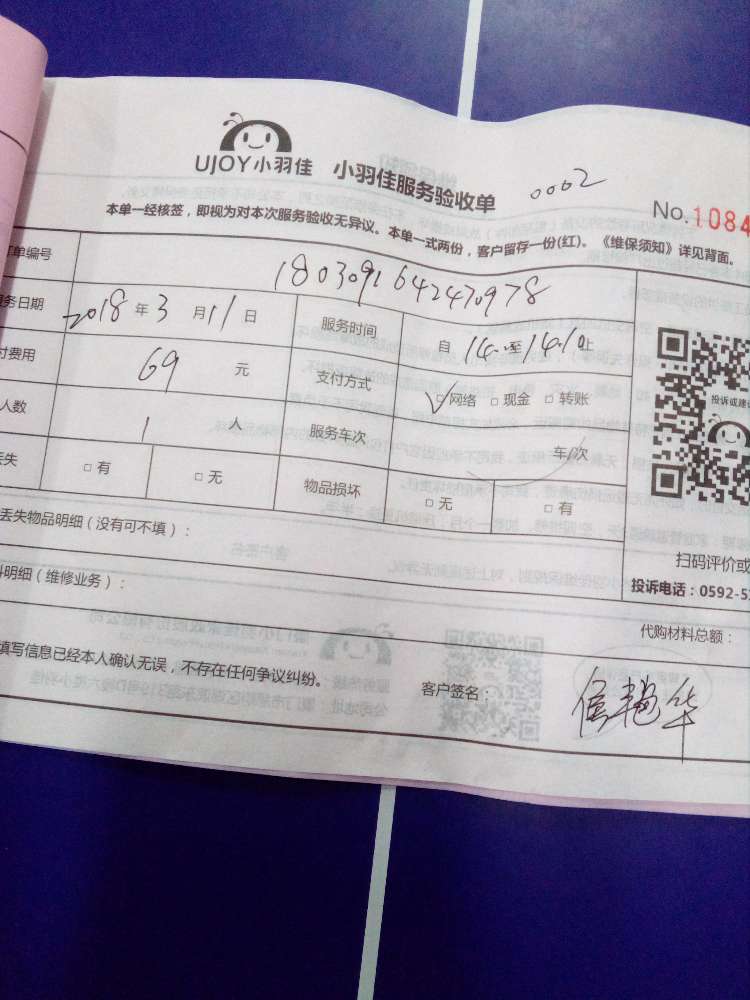 UJOY小羽佳 小羽佳服务验收单 0002
No.1084
本单一经核签，即视为对本次服务验收无异议。本单一式两份，客户留存一份(红)。《维保须知》详见背面。
单编号 1803091642470978
务日期 2018年3月11日 服务时间 自14.至14.10止
付费用 69元 支付方式 √□网络 □现金 □转账
人数 1人 服务车次 车/次
丢失 □有 □无 物品损坏 □无 □有
投诉或建
丢失物品明细（没有可不填）：
扫码评价或
料明细（维修业务）：
投诉电话：0592-5
代购材料总额：
填写信息已经本人确认无误，不存在任何争议纠纷。
客户签名：